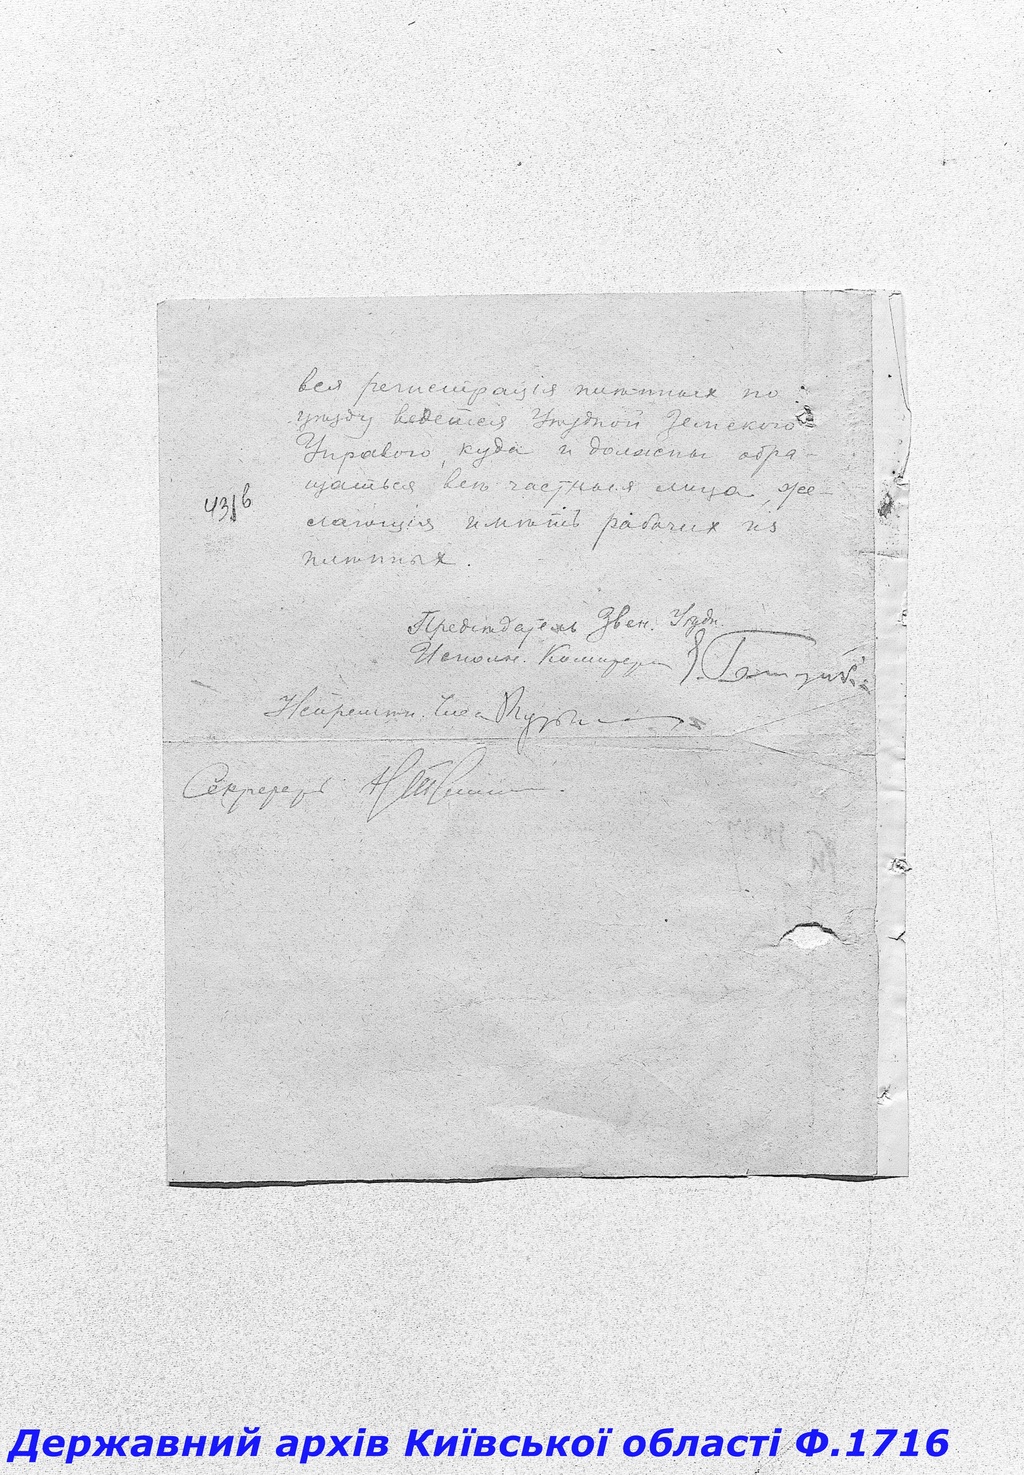 вся регистрація плѣнныхъ по
уѣзду ведется Уѣздной Земскою
Управою, куда и должны обра-
щаться всѣ частныя лица, же-
лающія имѣть рабочих из
плѣнных.
43/в
Предсѣдатель Звен. Уѣздн.
Исполн. Комитета
Секретарь
Державний архів Київської області Ф.1716